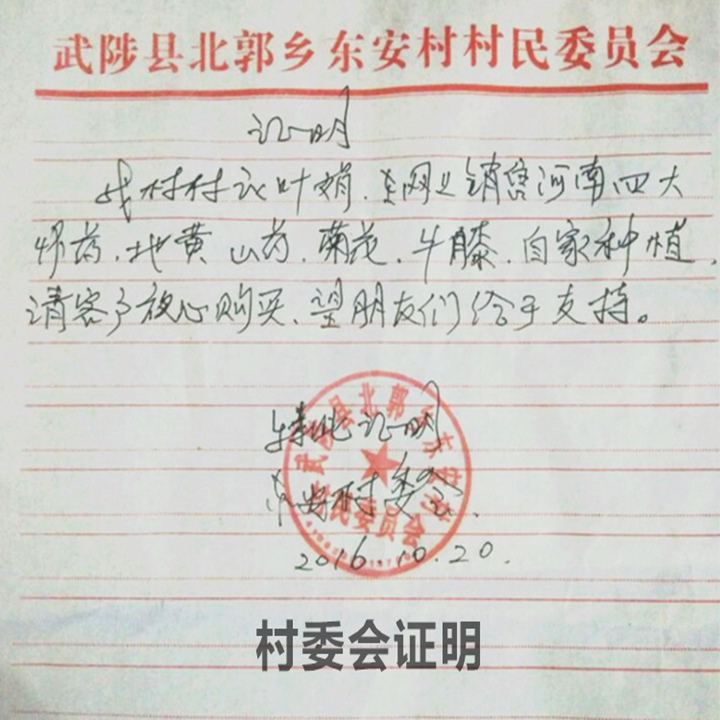 武陟县北郭乡东安村村民委员会
证明
我村村议叶娟.在网上销售河南四大
怀药.地黄 山药.菊花.牛膝.自家种植.
请客户放心购买、望朋友们给予支持。
特此证明
东安村委会.
武陟县北郭乡东安村
村民委员会
2016.10.20.
村委会证明